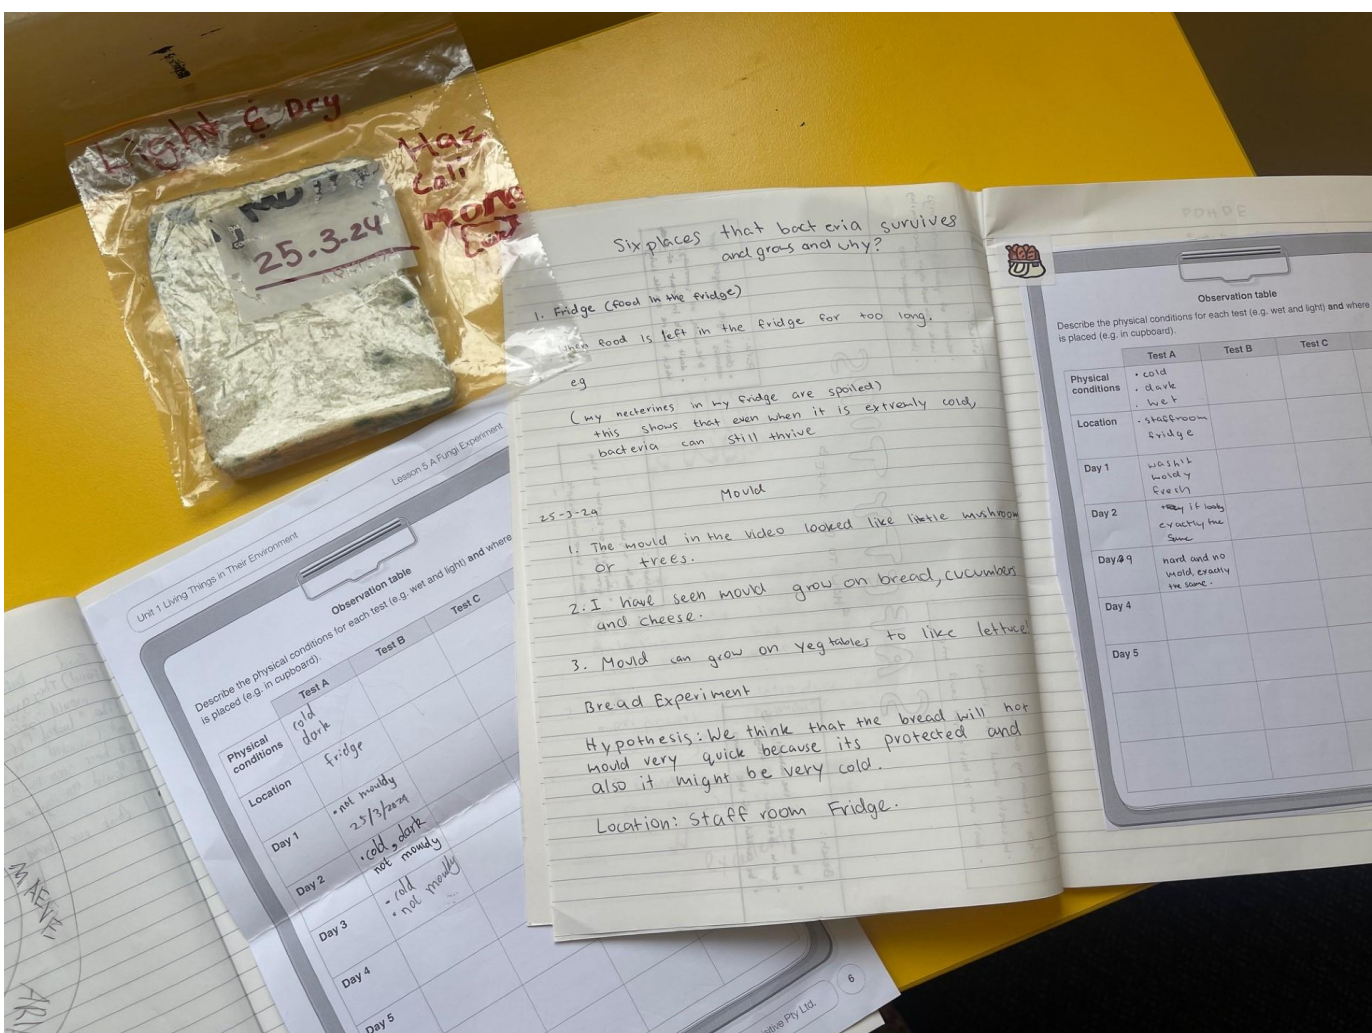 Light & Dry
Haz
Cali
25.3-24
Six places that bacteria survives
and grows and why?
1. Fridge (food in the fridge)
when food is left in the fridge for too long.
eg
(my necterines in my fridge are spoiled)
this shows that even when it is extremly cold,
bacteria can still thrive
Mould
25-3-24
1. The mould in the video looked like little mushroom
or trees.
2. I have seen mould grow on bread, cucumbers
and cheese.
3. Mould can grow on vegtables to like lettuce!
Bread Experiment
Hypothesis: We think that the bread will not
mould very quick because its protected and
also it might be very cold.
Location: Staff room Fridge.
Observation table
Describe the physical conditions for each test (e.g. wet and light) and where
is placed (e.g. in cupboard).
Test A Test B Test C
Physical
conditions
• cold
• dark
• wet
Location
• staffroom
fridge
Day 1
moldy
fresh
Day 2
exactly the
same
Day 9
hard and no
mold, exactly
the same.
Day 4
Day 5
Unit 1 Living Things in Their Environment
Lesson 5 A Fungi Experiment
Observation table
Describe the physical conditions for each test (e.g. wet and light) and where
is placed (e.g. in cupboard).
Test A Test B Test C
Physical
conditions
cold
dark
Location
fridge
Day 1
• not mouldy
25/3/2024
Day 2
• cold, dark
not mouldy
Day 3
- cold
• not mouldy
Day 4
Day 5
Pty Ltd.
6
MAEVE